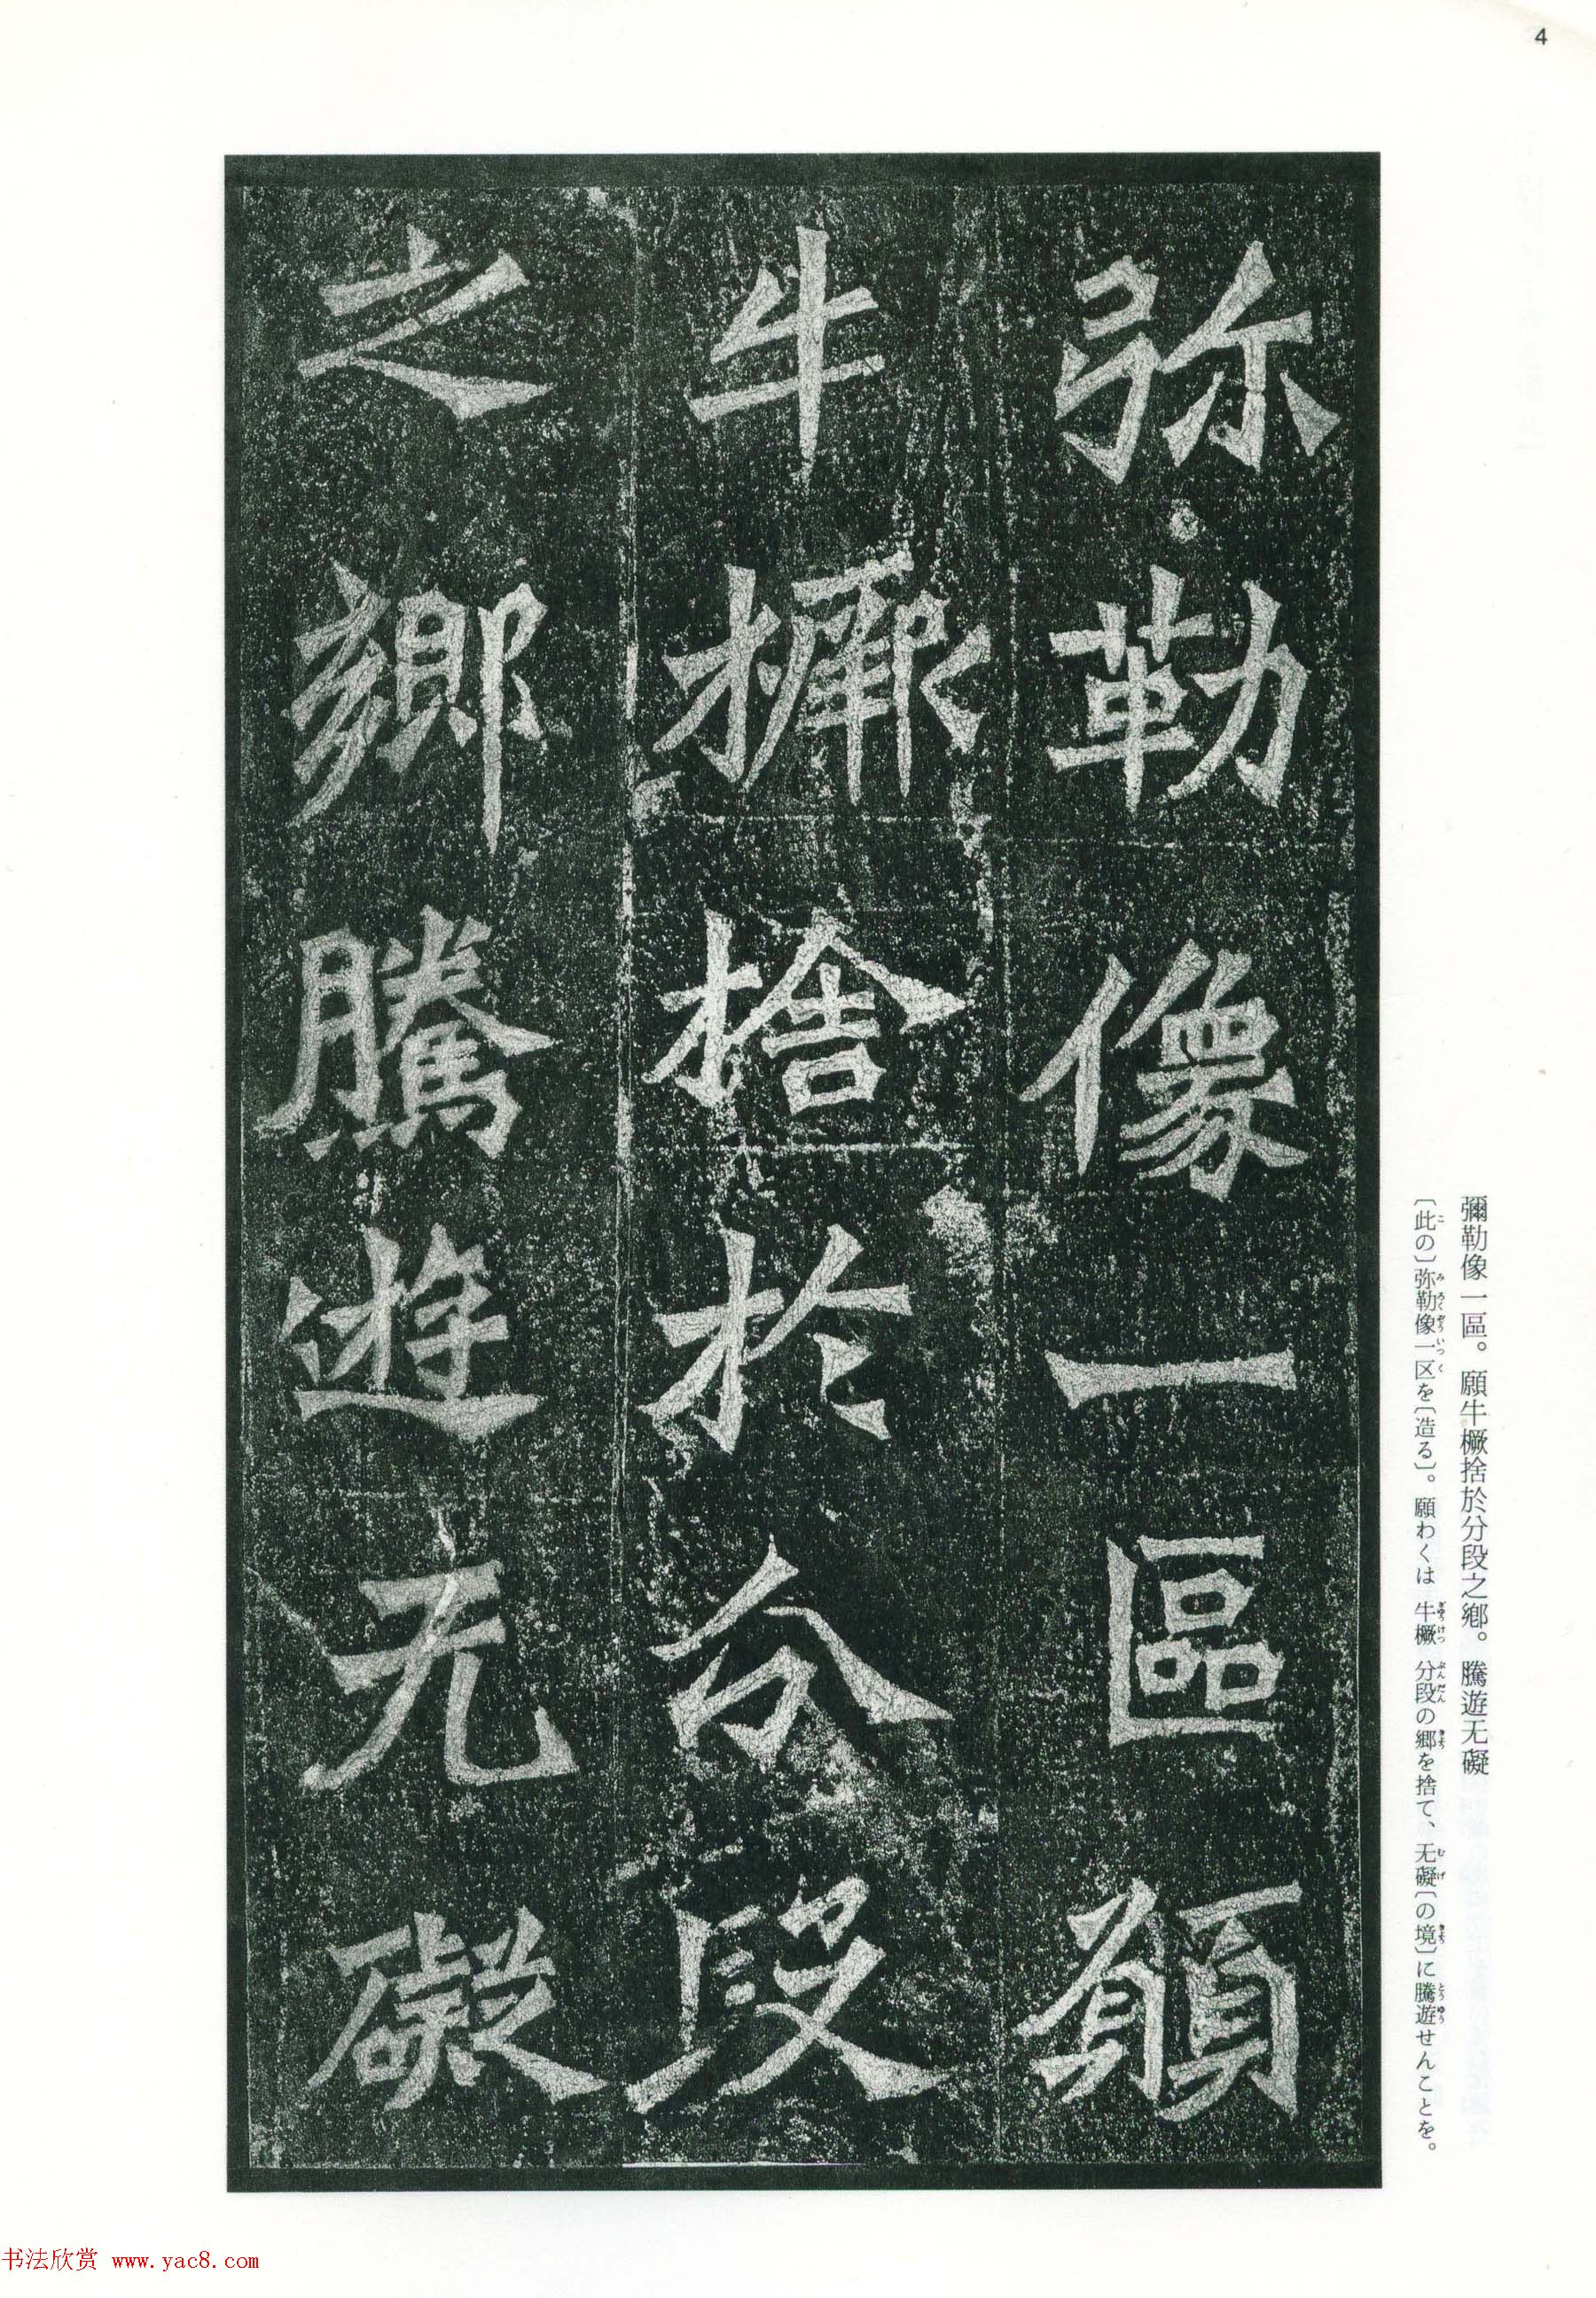 4
弥勒像一區願
牛橛捨於分段
之鄉騰遊无礙
彌勒像一區。願牛橛捨於分段之鄉。騰遊无礙
〔此の〕弥勒像一区を〔造る〕。願わくは 牛橛 分段の郷を捨て、无礙〔の境〕に騰遊せんことを。
书法欣赏 www.yac8.com